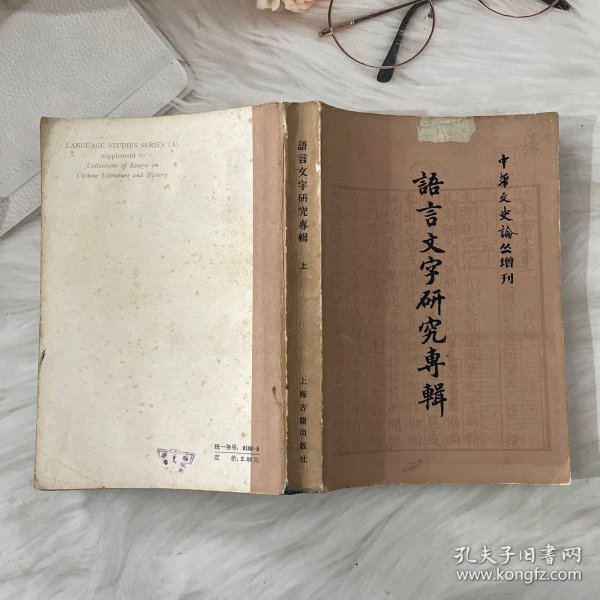 LANGUAGE STUDIES SERIES (A)
supplement to
Collections of Essays on
Chinese Literature and History
统一书号：9186·8
定 价：2.00元
語言文字研究專輯 上
上海古籍出版社
中華文史論丛增刊
語言文字研究専輯
孔夫子旧书网
www.kongfz.com